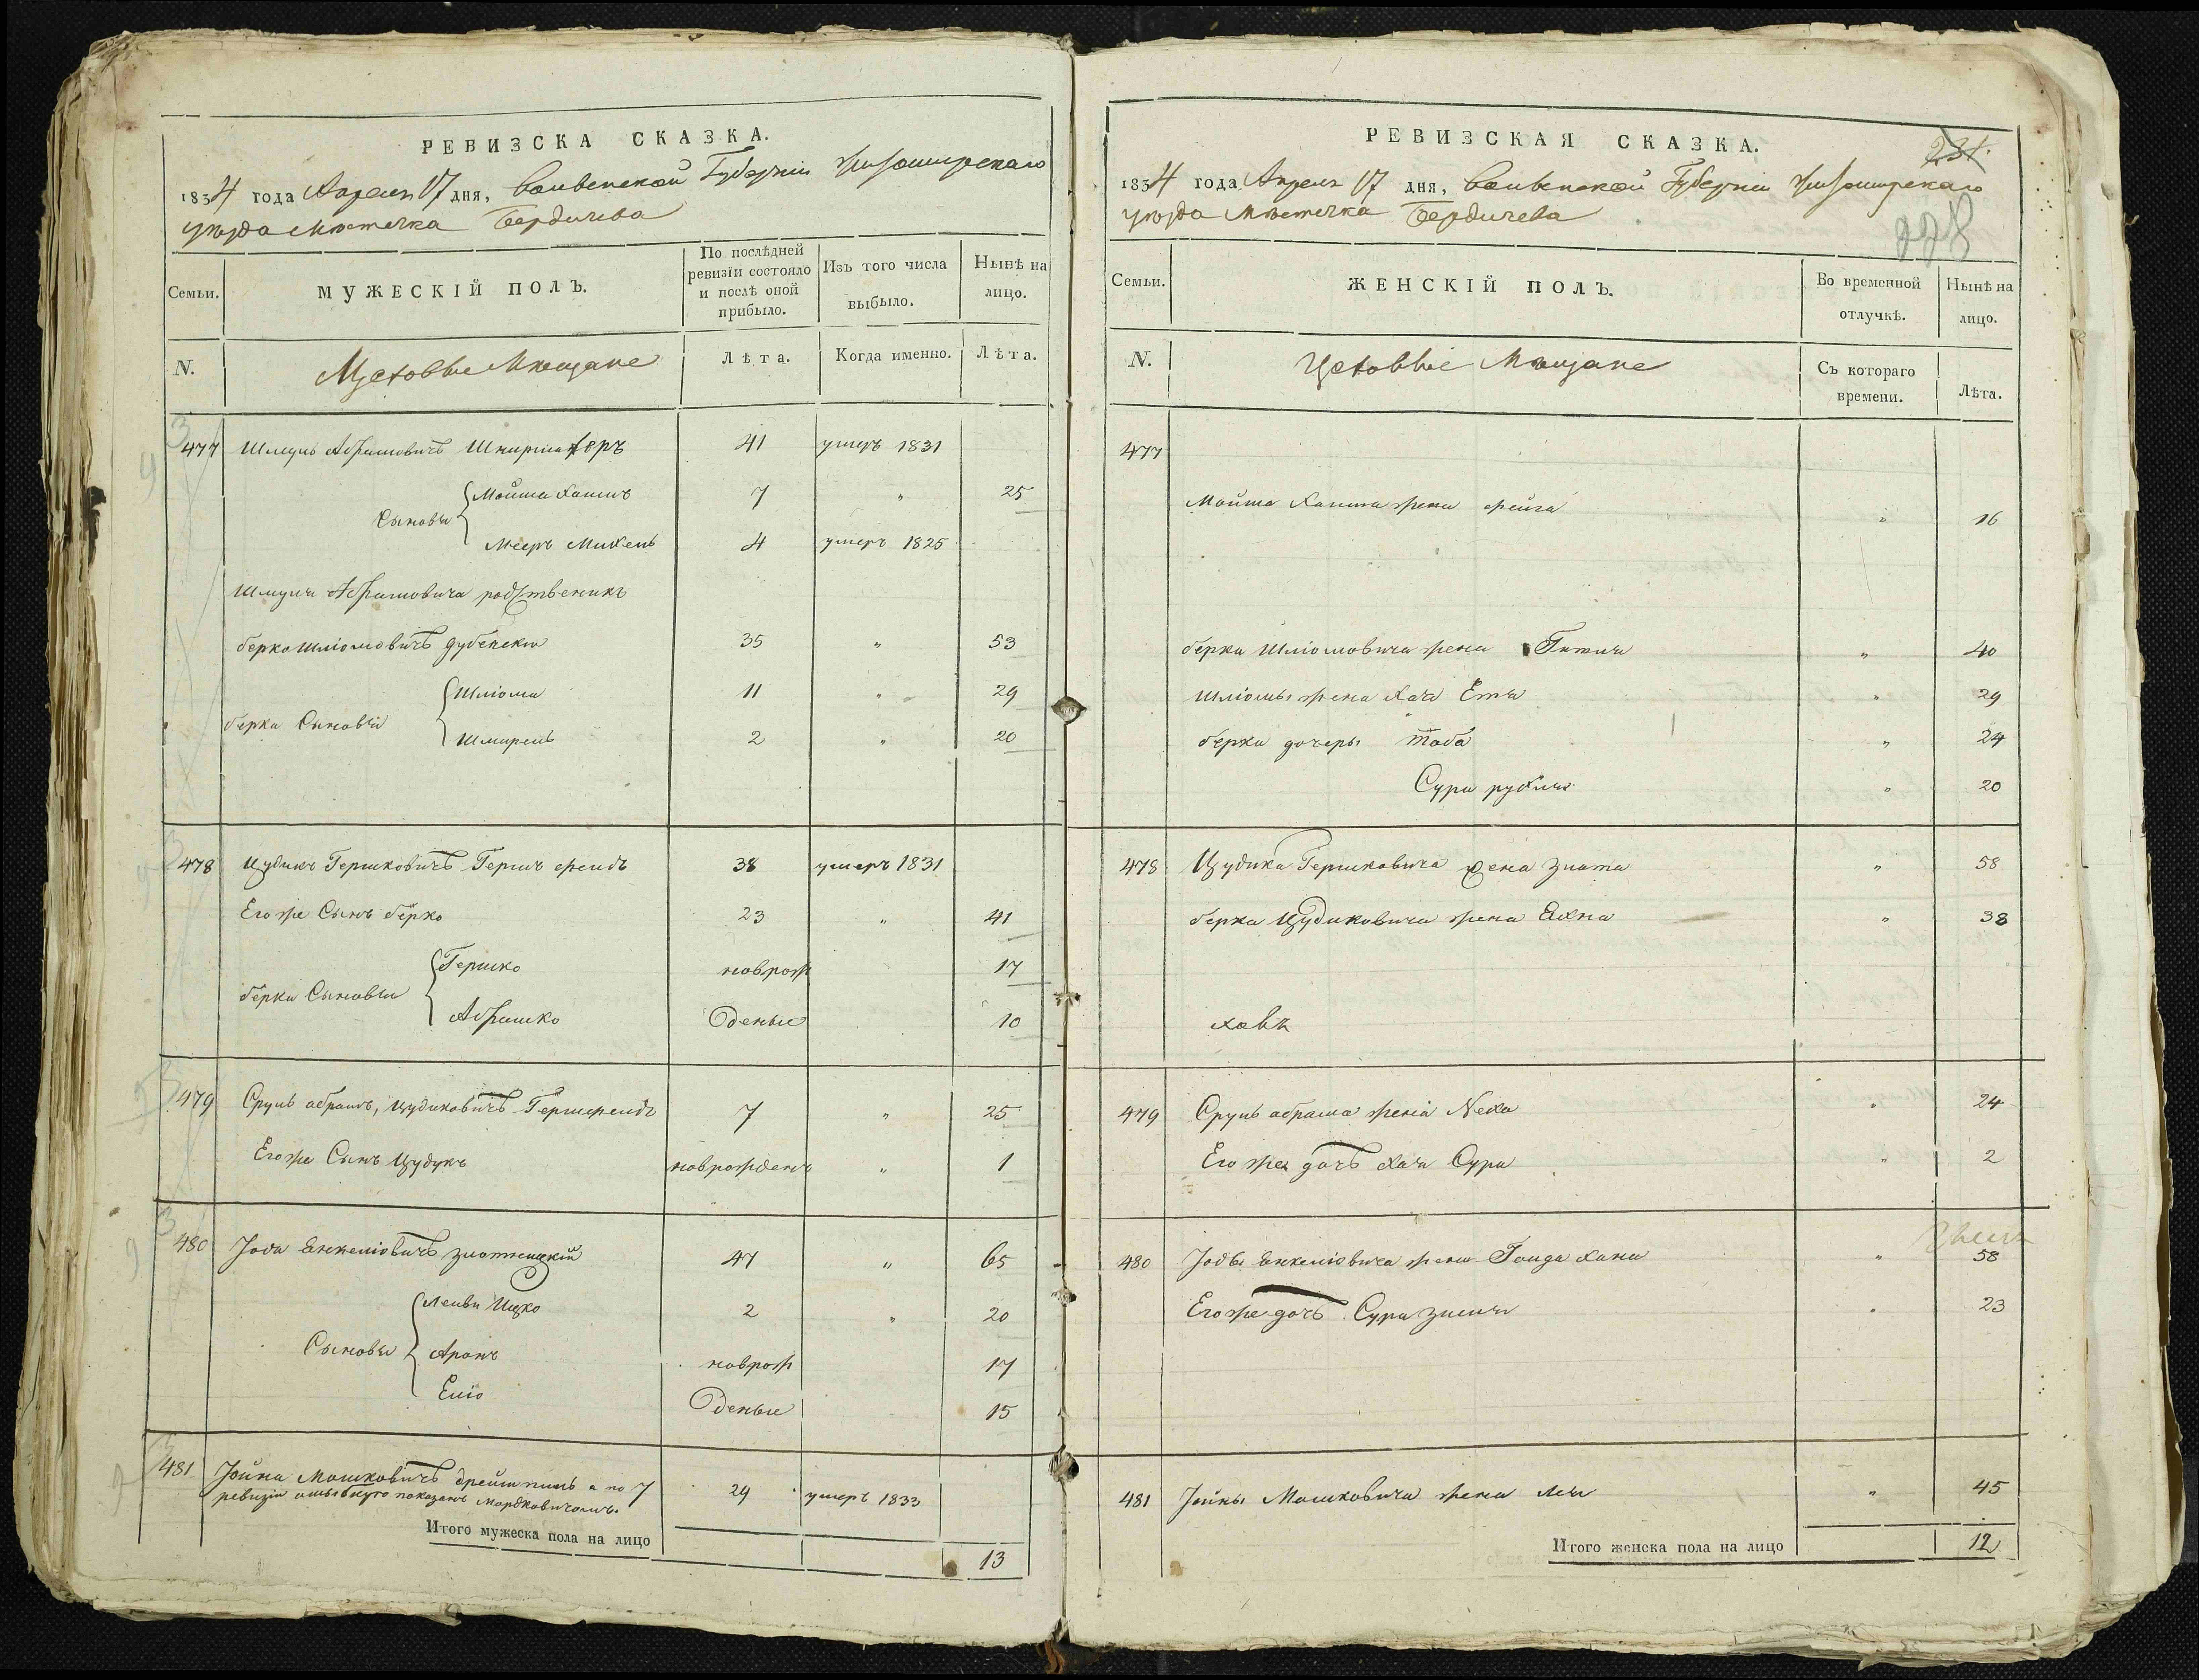 РЕВИЗСКА СКАЗКА.
1834 года Апреля 17 дня, Волынской Губернии Житомирскаго
уезда Местечка Бердичева
Семьи.
МУЖЕСКІЙ ПОЛЪ.
По послѣдней ревизіи состояло и послѣ оной прибыло.
Изъ того числа выбыло.
Нынѣ на лицо.
N.
Цеховые Мещане
Лѣта.
Когда именно.
Лѣта.
477 Шмуль Абрамовичъ 41 умеръ 1831
Сыновья Мойша Хаимъ 7 " 25
Мееръ Михель 4 умеръ 1825
Шмуля Абрамовича родственикъ
Берко Шліомовичъ Дубенски 35 " 53
Берка Сыновья Шліома 11 " 29
Шмирель 2 " 20
478 Цудикъ Гершковичъ Герш фелдъ 38 умеръ 1831
Его же Сынъ Берко 23 " 41
Берка Сыновья Гершко новрож 17
Абрамко деные 10
479 Сруль абрамъ, Цудиковичъ Гершфелдъ 7 " 25
Его же Сынъ Цудукъ новрожденъ " 1
480 Іова Янкеліовичъ Златницкій 47 " 65
Сыновья Лейви Ицко 2 " 20
Аронъ новрож 17
Еліо деные 15
481 Іойна Мошковичъ а по 7 29 умеръ 1833
ревизіи показанъ Мордковичомъ.
Итого мужеска пола на лицо 13
РЕВИЗСКАЯ СКАЗКА.
231.
1834 года Апреля 17 дня, Волынской Губернии Житомирскаго
уезда Местечка Бердичева
228
Семьи.
ЖЕНСКІЙ ПОЛЪ.
Во временной отлучкѣ.
Нынѣ на лицо.
N.
Цеховые Мещане
Съ котораго времени.
Лѣта.
477
Мойша Хаима жена Фейга " 16
Берка Шліомовича жена Гитля " 40
Шліомы жена Хая Етя " 29
Берка дочеры Тоба " 24
Сура рухля " 20
478 Цудика Гершковича жена Злота " 58
Берка Цудиковича жена Яхна " 38
479 Сруль абрама жена Неха " 24
Его же дочъ Хая Сура " 2
480 Іовы Янкеліовича жена Голда Хана " 58
Его же дочъ Сура " 23
481 Іойны Мошковича жена Лея " 45
Итого женска пола на лицо 12